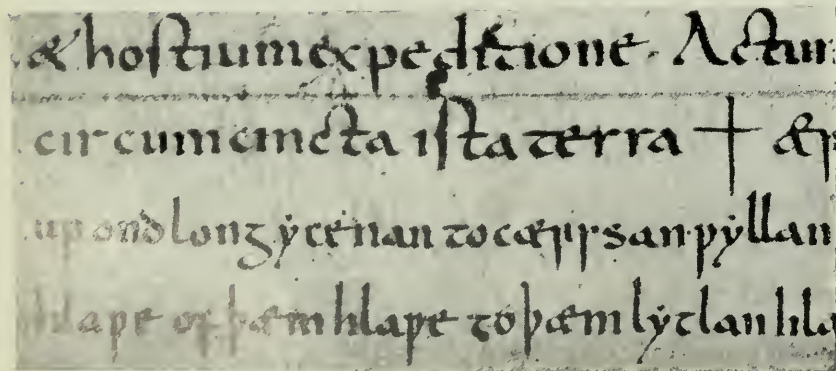 & hostium expeditione. Actum
circumcincta ista terra + ær
up ondlong ycenan to cærssan·ƿyllan
hlaƿe of þæm hlaƿe to þæm lytlan hla